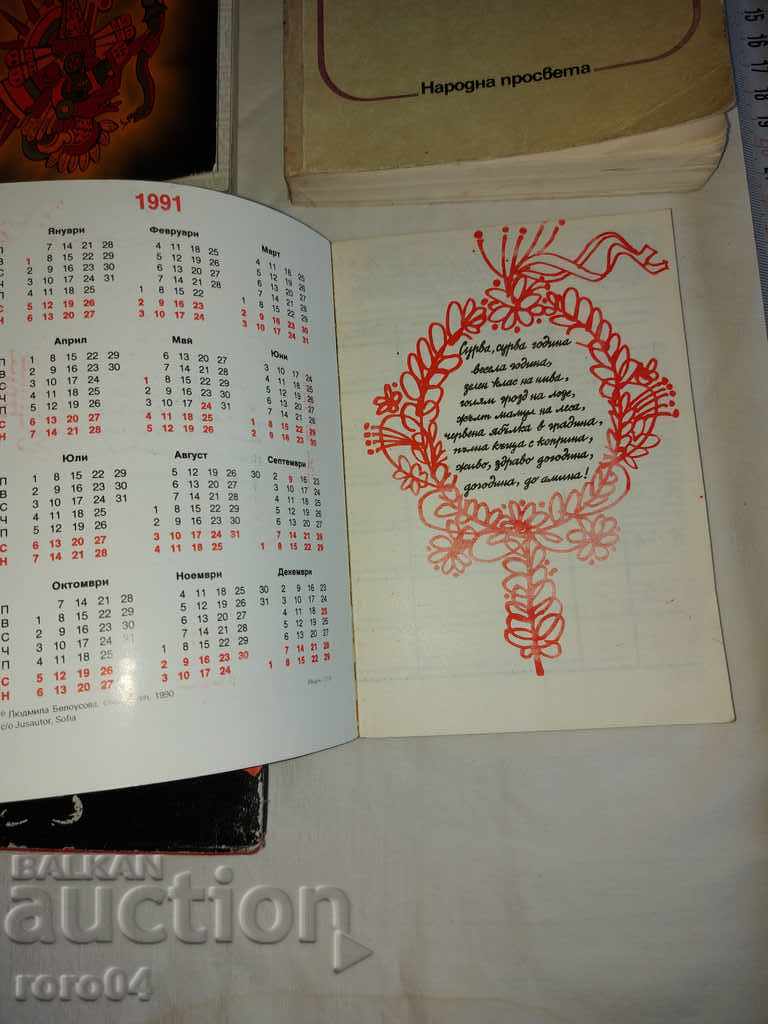 Народна просвета
15 16 17 18 19
1991
Януари
П 7 14 21 28
В 1 8 15 22 29
С 2 9 16 23 30
Ч 3 10 17 24 31
П 4 11 18 25
С 5 12 19 26
Н 6 13 20 27
Февруари
4 11 18 25
5 12 19 26
6 13 20 27
7 14 21 28
1 8 15 22
2 9 16 23
3 10 17 24
Март
4 11 18 25
5 12 19 26
6 13 20 27
7 14 21 28
1 8 15 22 29
2 9 16 23 30
3 10 17 24 31
Април
П 1 8 15 22 29
В 2 9 16 23 30
С 3 10 17 24
Ч 4 11 18 25
П 5 12 19 26
С 6 13 20 27
Н 7 14 21 28
Май
6 13 20 27
7 14 21 28
1 8 15 22 29
2 9 16 23 30
3 10 17 24 31
4 11 18 25
5 12 19 26
Юни
3 10 17 24
4 11 18 25
5 12 19 26
6 13 20 27
7 14 21 28
1 8 15 22 29
2 9 16 23 30
Юли
П 1 8 15 22 29
В 2 9 16 23 30
С 3 10 17 24 31
Ч 4 11 18 25
П 5 12 19 26
С 6 13 20 27
Н 7 14 21 28
Август
5 12 19 26
6 13 20 27
7 14 21 28
1 8 15 22 29
2 9 16 23 30
3 10 17 24 31
4 11 18 25
Септември
30 2 9 16 23
3 10 17 24
4 11 18 25
5 12 19 26
6 13 20 27
7 14 21 28
1 8 15 22 29
Октомври
П 7 14 21 28
В 1 8 15 22 29
С 2 9 16 23 30
Ч 3 10 17 24 31
П 4 11 18 25
С 5 12 19 26
Н 6 13 20 27
Ноември
4 11 18 25
5 12 19 26
6 13 20 27
7 14 21 28
1 8 15 22 29
2 9 16 23 30
3 10 17 24
Декември
30 2 9 16 23
31 3 10 17 24
4 11 18 25
5 12 19 26
6 13 20 27
7 14 21 28
1 8 15 22 29
© Людмила Белоусова, 1990
c/o Jusautor, Sofia
Сурва, сурва година
весела година,
зелен клас на нива,
голям грозд на лозе,
жълт мамул на леса,
червена ябълка в градина,
пълна къща с коприна,
живо, здраво догодина,
догодина, до амина!
BALKAN
auction
roro04